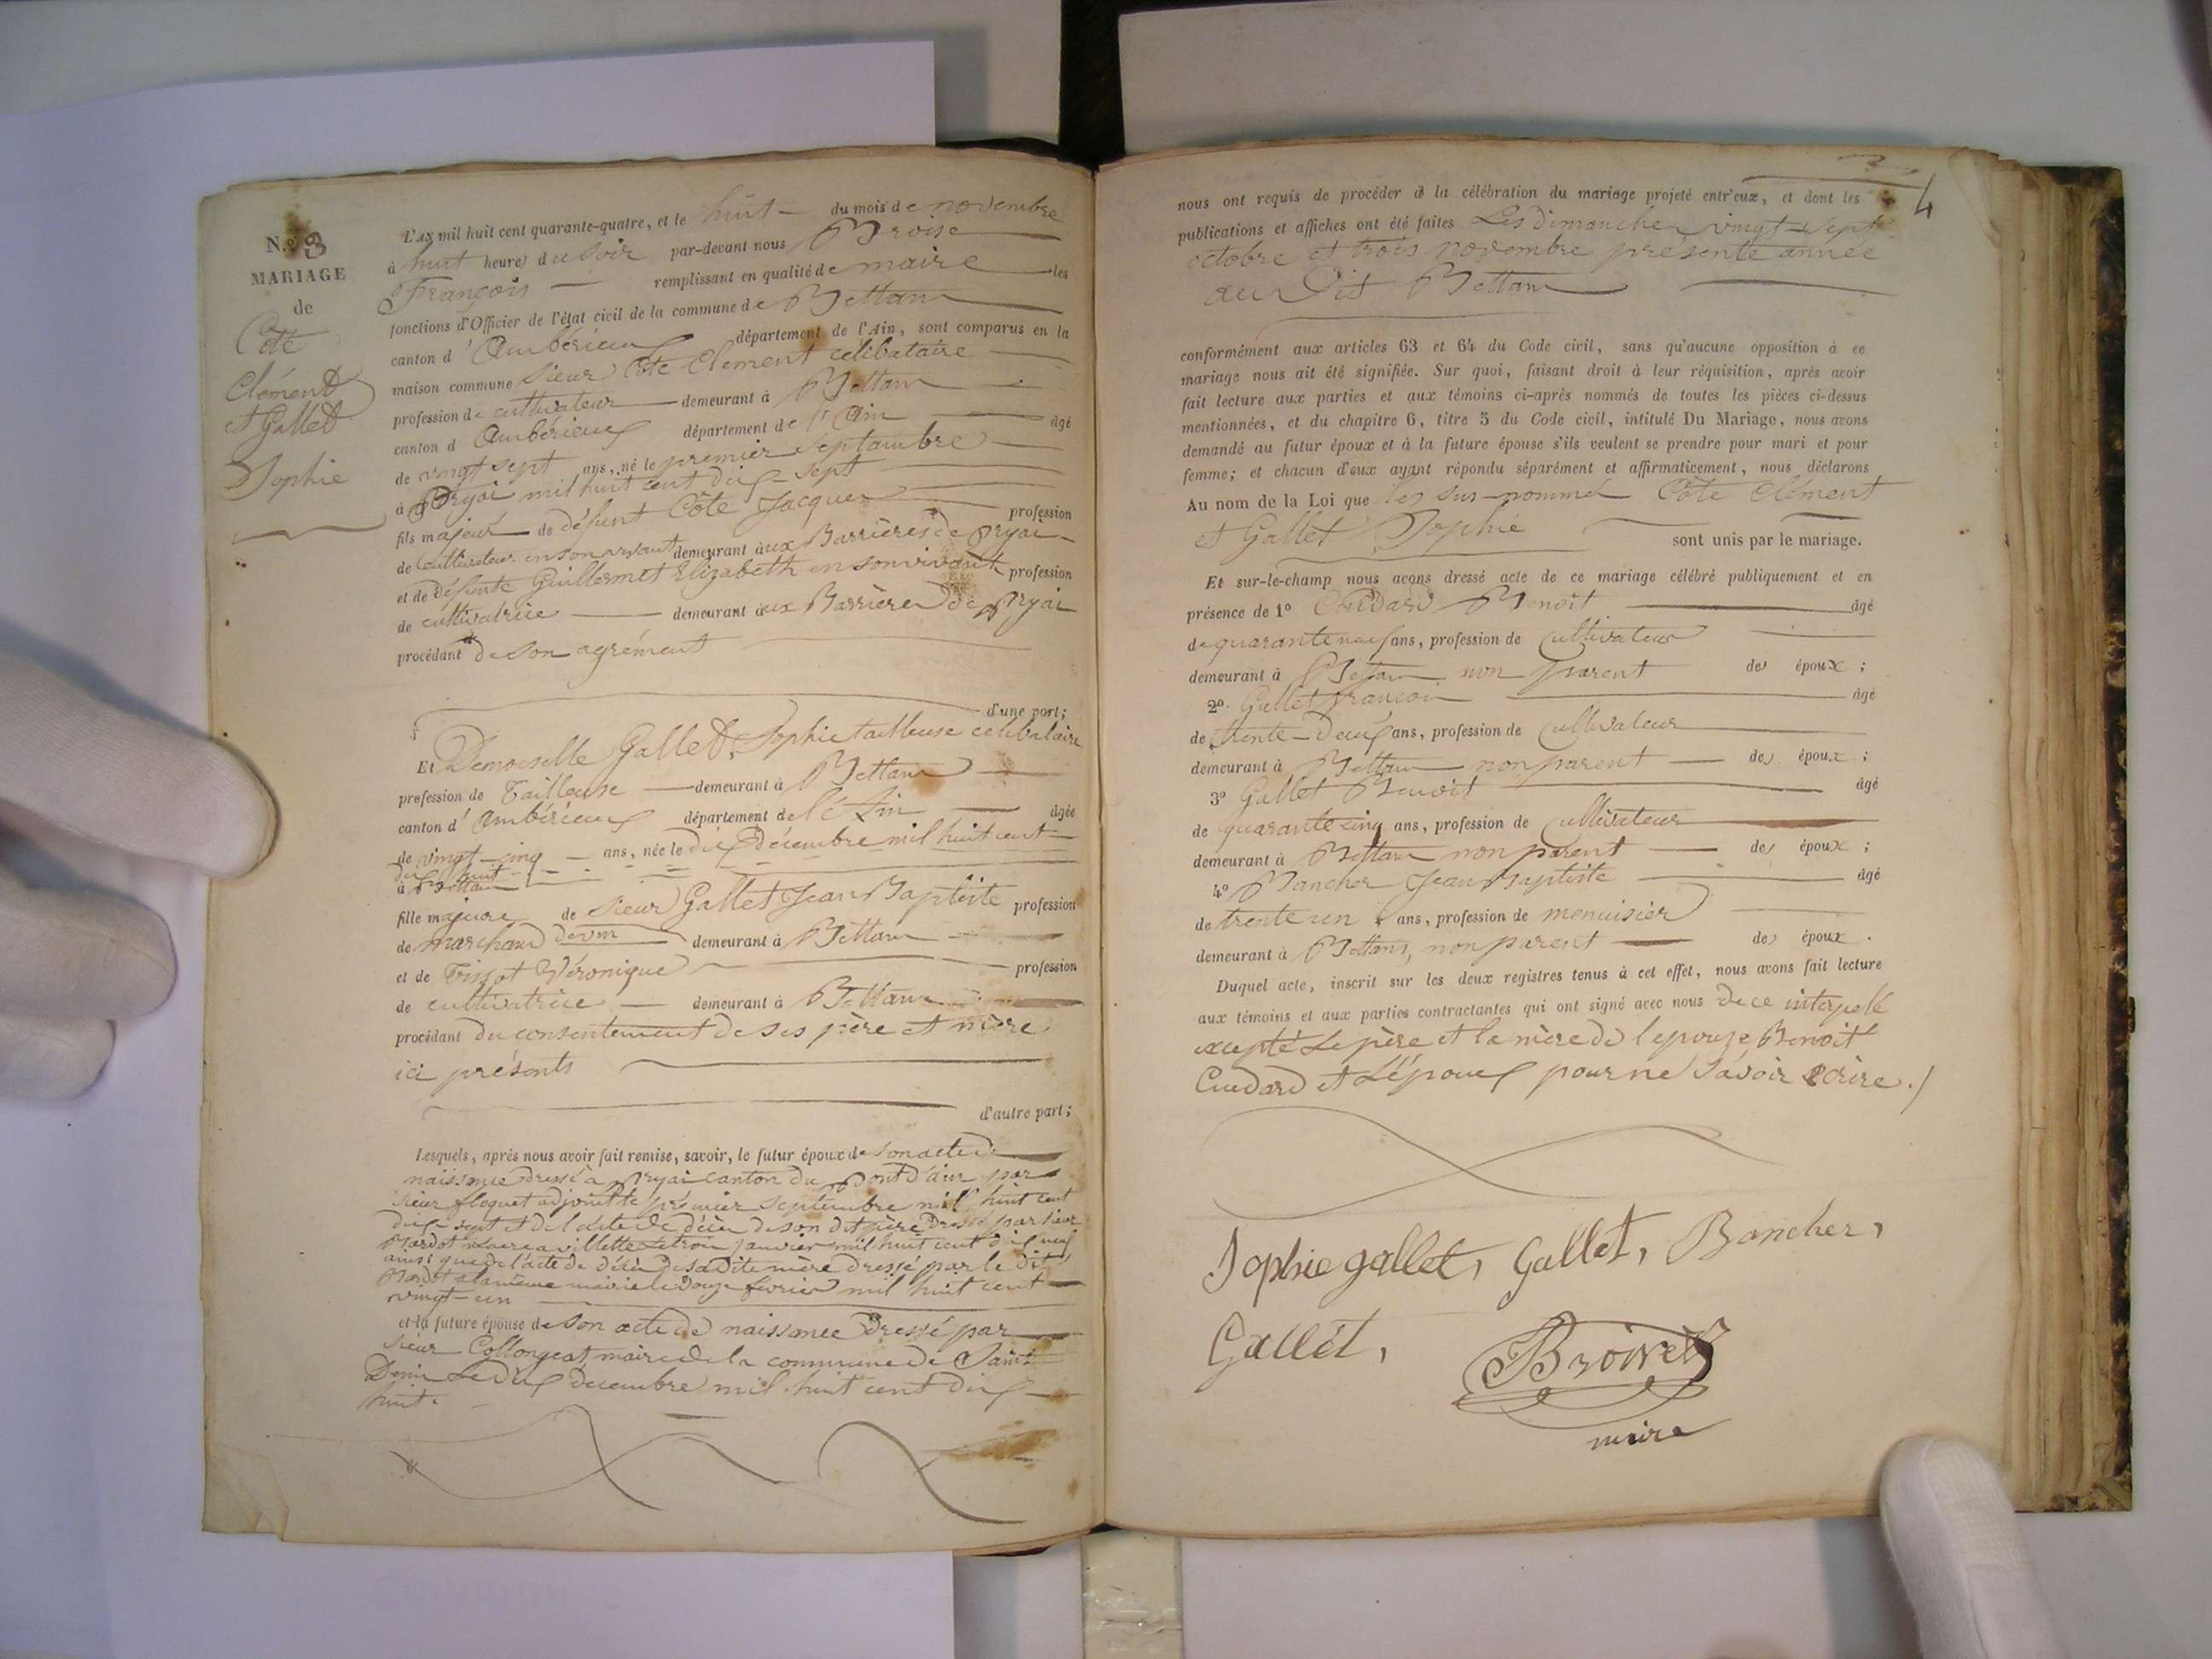 N.o 3
MARIAGE
de
Côte
Clément
et Gallet
Sophie
L'AN mil huit cent quarante-quatre, et le huit du mois de novembre
à huit heures du soir par-devant nous Broise
François remplissant en qualité de maire les
fonctions d'Officier de l'état civil de la commune de Bettan
canton d'Ambérieux département de l'Ain, sont comparus en la
maison commune Sieur Côte Clément célibataire
profession de cultivateur demeurant à Bettan
canton d'Ambérieux département de l'Ain âgé
de vingt sept ans, né le premier septambre
à Pryai mil huit cent dix-sept
fils majeur de défunt Côte Jacques profession
de cultivateur en son vivant demeurant aux Barrières de Pryai
et de défunte Guillermet Elizabeth en son vivant profession
de cultivatrice demeurant aux Barrières de Pryai
procédant de son agrément
d'une part;
Et Demoiselle Gallet, Sophie tailleuse célibataire
profession de Tailleuse demeurant à Bettan
canton d'Ambérieux département de l'Ain âgée
de vingt-cinq ans, née le dix Décembre mil huit cent
dix huit
à Bettan
fille majeure de Sieur Gallet Jean Baptiste profession
de marchand de vin demeurant à Bettan
et de Tissot Véronique profession
de cultivatrice demeurant à Bettan
procédant du consentement de ses père et mère
ici présents
d'autre part;
Lesquels, après nous avoir fait remise, savoir, le futur époux de son acte de
naissance dressé à Pryai canton du Pont d'ain par
sieur floquet adjoint le premier septembre mil huit cent
dix sept et de l'acte de décès de son dit père dressé par sieur
Mardot maire a villette le trois janvier mil huit cent dix neuf
ainsi que de l'acte de décès de sa dite mère dressé par le dit
Mardot a la même mairie le douze février mil huit cent
vingt-un
et la future épouse de son acte de naissance dressé par
sieur Collongeat, maire de la commune de Saint
Denis le dix decembre mil huit cent dix
huit.
4
nous ont requis de procéder à la célébration du mariage projeté entr'eux, et dont les
publications et affiches ont été faites Les dimanches vingt-sept
octobre et trois novembre présente année
au dit Bettan
conformément aux articles 63 et 64 du Code civil, sans qu'aucune opposition à ce
mariage nous ait été signifiée. Sur quoi, faisant droit à leur réquisition, après avoir
fait lecture aux parties et aux témoins ci-après nommés de toutes les pièces ci-dessus
mentionnées, et du chapitre 6, titre 5 du Code civil, intitulé Du Mariage, nous avons
demandé au futur époux et à la future épouse s'ils veulent se prendre pour mari et pour
femme; et chacun d'eux ayant répondu séparément et affirmativement, nous déclarons
Au nom de la Loi que les sus-nommés Côte Clément
et Gallet Sophie sont unis par le mariage.
Et sur-le-champ nous avons dressé acte de ce mariage célébré publiquement et en
présence de 1o Cuidard Benoit âgé
de quarante neuf ans, profession de Cultivateur
demeurant à Bettan non parent des époux;
2o. Gallet françois âgé
de trente-deux ans, profession de Cultivateur
demeurant à Bettan non parent des époux;
3o Gallet Benoit âgé
de quarante cinq ans, profession de Cultivateur
demeurant à Bettan non parent des époux;
4o Bancher Jean Baptiste âgé
de trente un ans, profession de menuisier
demeurant à Bettans, non parent des époux.
Duquel acte, inscrit sur les deux registres tenus à cet effet, nous avons fait lecture
aux témoins et aux parties contractantes qui ont signé avec nous de ce interpellé
excepté le père et la mère de l'epouse Benoit
Cuidard et L'époux pour ne savoir ecrire./
Sophie gallet, Gallet, Bancher,
Gallét, Broise
maire